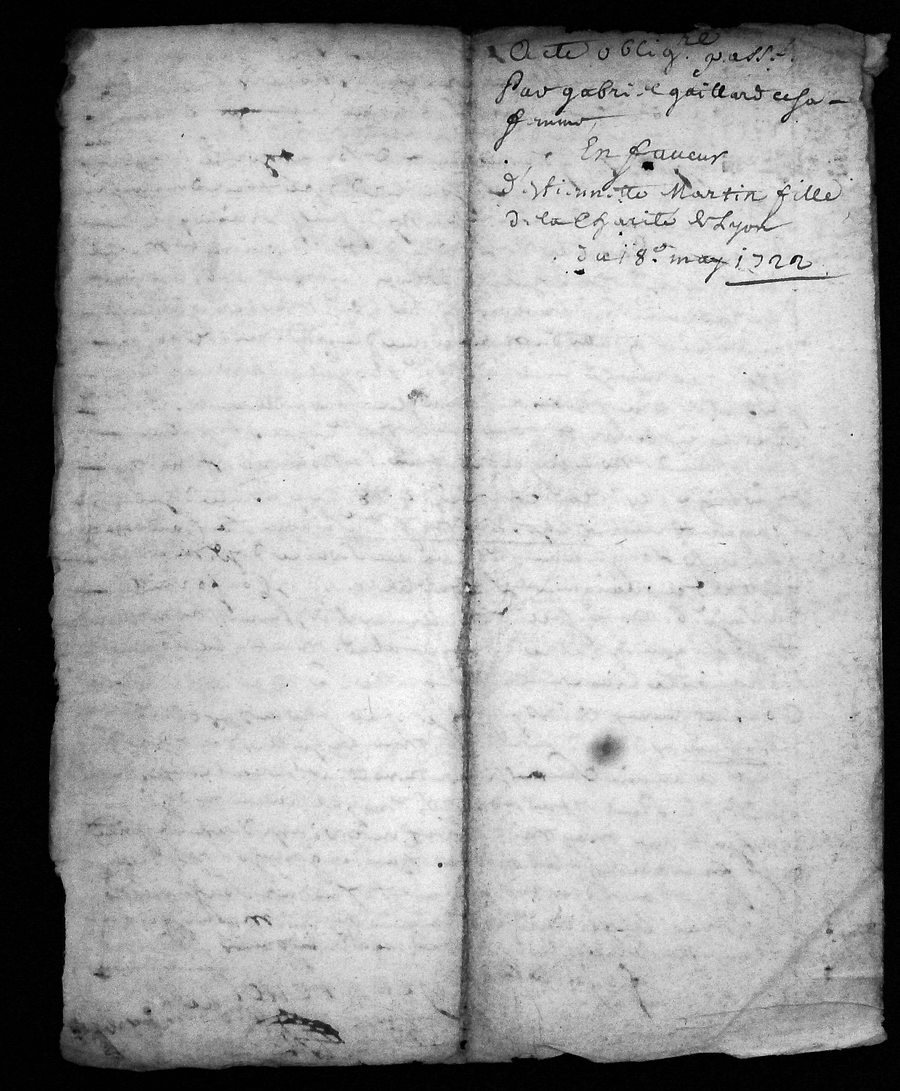 Acte oblig.re passé
Par gabriel gaillard et sa
femme
En faueur
d'estiennette Martin fille
de la Charité de Lyon
du 18.e may 1722